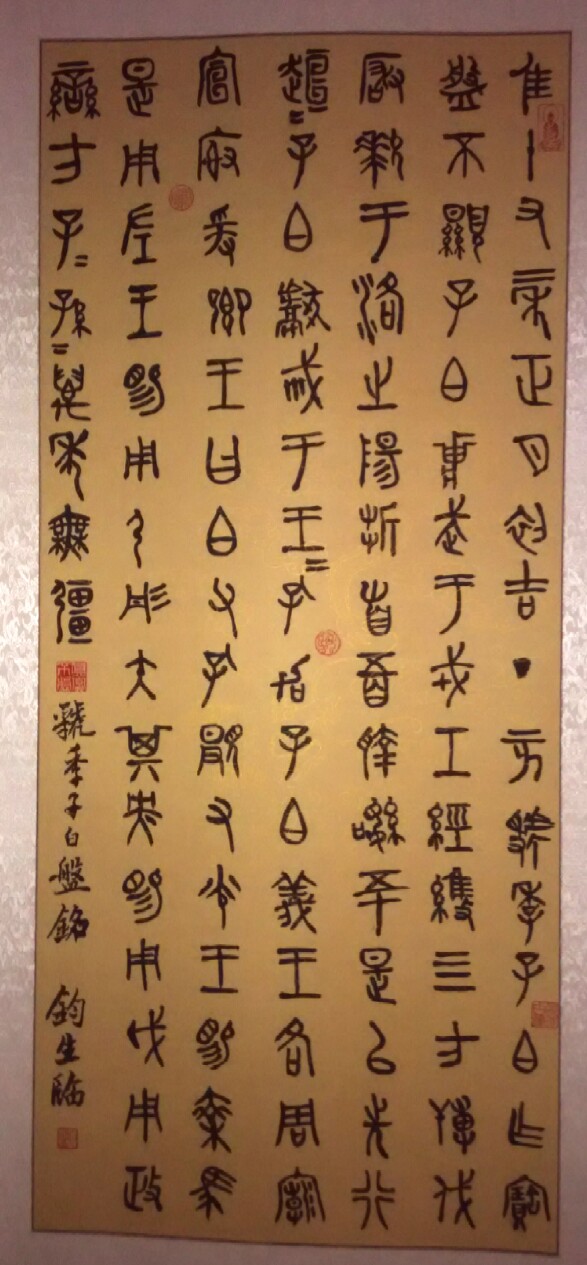 隹十又二年正月初吉丁亥虢季子白乍寶
盤不顯子白壯武于戎工經維四方搏伐
玁狁于洛之陽折首五百執訊五十是以先行
趄=子白獻馘于王=孔加子白義王各周廟
宣榭爰鄉王曰白父孔顯又光王賜乘馬
是用左王賜用弓彤矢其央賜用戉用政
蠻方子=孫=萬年無疆
虢季子白盤銘 鈞生臨